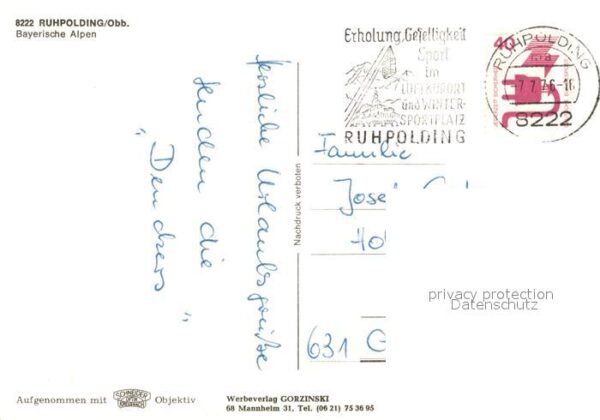 8222 RUHPOLDING/Obb.
Bayerische Alpen
Herzliche Urlaubsgrüße
senden die
"Denckers"
Erholung, Geselligkeit
Sport
im
LUFTKURORT
und WINTER-
SPORTPLATZ
RUHPOLDING
RUHPOLDING
ma
-7.7.76-16
8222
40
Nachdruck verboten
Familie
José
Ho
631 G
privacy protection
Datenschutz
Aufgenommen mit SCHNEIDER KREUZNACH Objektiv
Werbeverlag GORZINSKI
68 Mannheim 31, Tel. (06 21) 75 36 95